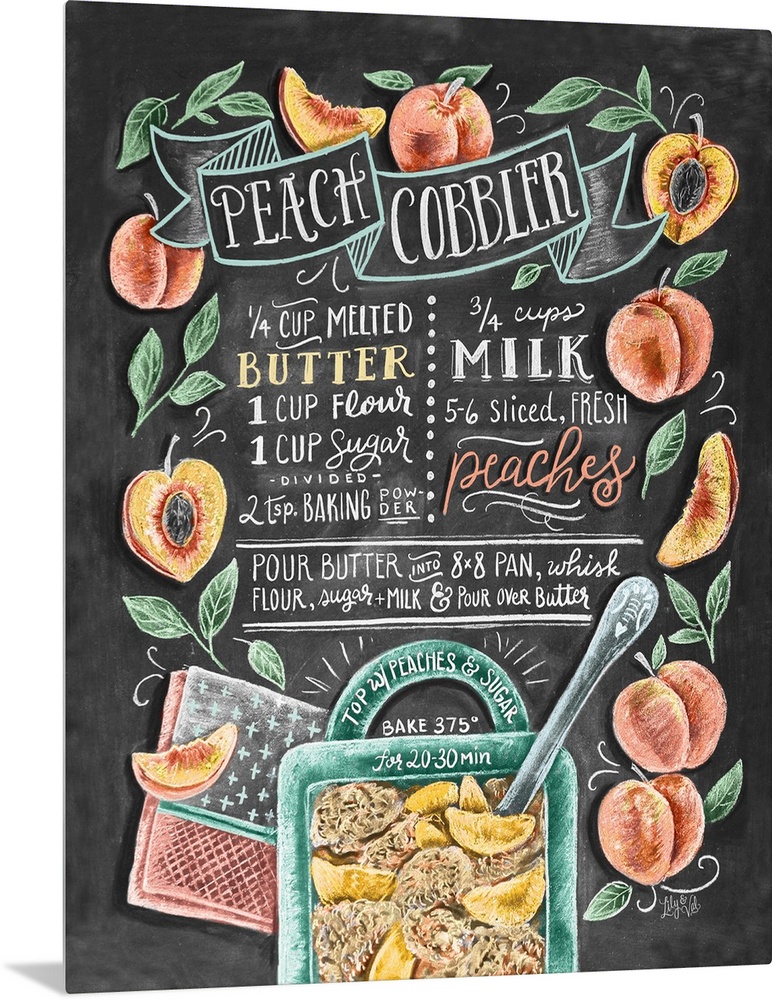 PEACH COBBLER
1/4 CUP MELTED
BUTTER
1 CUP Flour
1 CUP Sugar
-DIVIDED-
2 tsp. BAKING POW-DER
3/4 cups
MILK
5-6 sliced, FRESH
peaches
POUR BUTTER INTO 8x8 PAN, whisk
FLOUR, sugar + MILK & POUR OVER Butter
TOP w/ PEACHES & SUGAR
BAKE 375°
for 20-30 MIN
Lily & Val